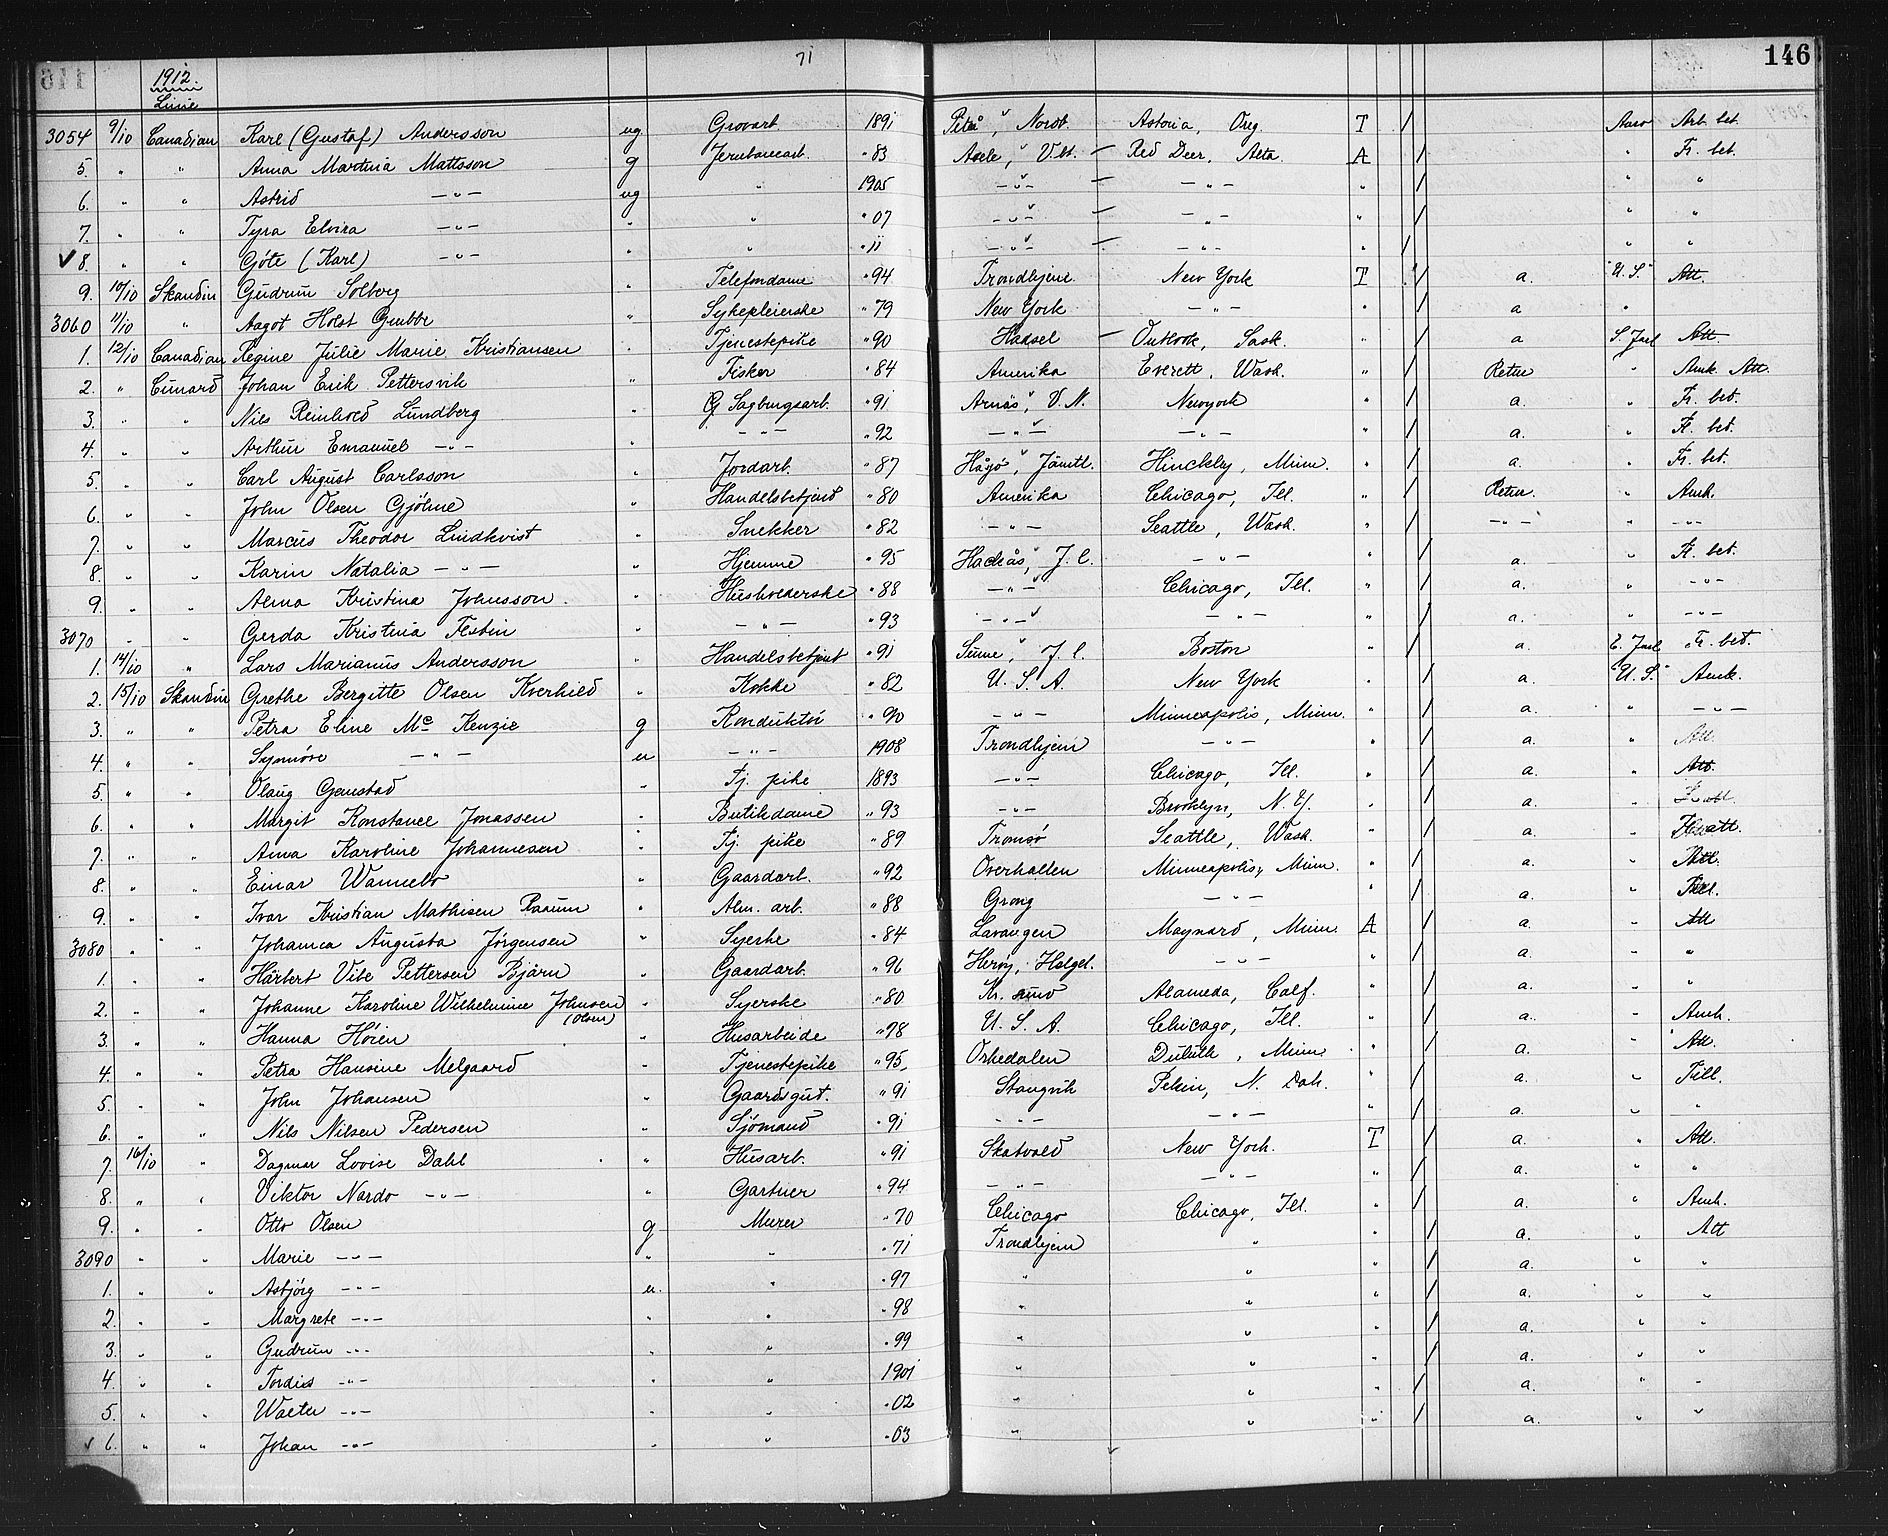 71
146
1912.
Linie
3054 9/10 Canadian Karl (Gustaf) Andersson ug Grovarb. 1891 Piteå, Nordb. Astoria, Oreg. T / Aaro Arb. bet.
5. " " Anna Martina Mattsson g Jernbanearb. " 83 Asele, V.bt. — Red Deer, Alta. A / " Fr. bet.
6. " " Astrid —"— ug " 1905 —"— — —"— " / " "
7. " " Tyra Elvira —"— " " " 07 —"— — —"— " / " "
✓ 8. " " Göte (Karl) —"— " " " 11 —"— — —"— " / " "
9. 10/10 Skandin Gudrun Solberg " Telefondame " 94 Trondhjem New York T / a. "U.S." Att.
3060 11/10 " Aagot Holst Grubbe " Sykepleierske " 79 New York —"— " / a "
1. 12/10 Canadian Regine Julie Marie Kristiansen " Tjenestepike " 90 Hadsel — Outlook, Sask. " / a S. Jarl Att
2. " Cunard Johan Erik Pettersvik " Fisker " 84 Amerika Everett, Wash. " / Retur " Amk. Att.
3. " " Nils Reinhold Lundberg " G Sagbrugsarb. " 91 Arnäs, V.N. Newyork " / a. " Fr. bet.
4. " " Arthur Emanuel —"— " —"— " 92 —"— —"— " / a. " Fr. bet.
5. " " Carl August Carlsson " Jordarb. " 87 Jämtl. Hinckley, Minn. " / a. " Fr. bet.
6. " " John Olsen Gjölme " Handelsbetjend " 80 Amerika Chicago, Ill. " / Retur. " Amk.
7. " " Marcus Theodor Lindkvist " Snekker " 82 —"— Seattle, Wash. " / —"— " —"—
8. " " Karin Natalia —"— " Hjemme " 95 Hackås, J.l. —"— " / a. " Fr. bet.
9. " " Alma Kristina Johnsson. " Husholderske " 88 —"— Chicago, Ill. " / a. " —"—
3070 " " Gerda Kristina Festin " —"— " 93 —"— —"— " / a. " —"—
1. 14/10 " Lars Marianus Andersson " Handelsbetjent " 91 Sunne, J.l. Boston " / a. E. Jarl Fr. bet.
2. 15/10 Skandin Grethe Bergitte Olsen Kverhild " Kokke " 82 U.S.A. New York " / a. "U.S." Amk.
3. " " Petra Eline Mc Kenzie g Konduktör " 90 —"— Minneapolis, Minn. " / a. " —"—
4. " " Synnöve —"— u —"— 1908 Trondhjem —"— " / a. " Att.
5. " " Olaug Gemstad " Tj. pike 1893 —"— Chicago, Ill. " / a. " Att.
6. " " Margit Konstance Jonassen " Butikdame " 93 —"— Brooklyn, N.Y. " / a. "
7. " " Anna Karoline Johannesen " Tj. pike " 89 Tromsö Seattle, Wash. " / a. "
8. " " Einar Wannebo " Gaardarb. " 92 Overhallen Minneapolis, Minn. " / a. " Att.
9. " " Ivar Kristian Mathisen Raaum " Alm. arb. " 88 Grong —"— " / a. "
3080 " " Johanna Augusta Jörgensen " Syerske " 84 Lavangen Maynard, Minn. A / a. " Att
1. " " Härbert Vibe Pettersen Bjørn " Gaardarb. " 96 Herøy, Helgel. —"— " / a. " "
2. " " Johanne Karoline Wilhelmine Johnsen (Olsen) " Syerske " 80 Kr. sund Alameda, Calf. " / a. " "
3. " " Hanna Höien " Husarbeide " 78 U.S.A. Chicago, Ill. " / a. " Amk.
4. " " Petra Hansine Melgaard " Tjenestepike " 95 Orkedalen Duluth, Minn. " / a. " Att.
5. " " John Johansen " Gaardsgut. " 91 Stangvik Pekin, N. Dak. " / a. " Till.
6. " " Nils Nilsen Pedersen " Sjömand " 91 —"— —"— " / a. " "
7. 16/10 " Dagmar Lovise Dahl " Husarb. " 91 Skatvold New York. T / a. " Att.
8. " " Viktor Nardo —"— " Gartner " 94 —"— —"— " / a. " "
9. " " Otto Olsen g Murer " 70 Chicago Chicago, Ill. " / a. " Amk.
3090 " " Marie —"— " " " 71 Trondhjem " " / a. " Att
1. " " Asbjörg —"— u. " " 97 " " " / a. " "
2. " " Margrete —"— " " " 98 " " " / a. " "
3. " " Gudrun —"— " " " 99 " " " / a. " "
4. " " Tordis —"— " " 1901 " " " / a. " "
5. " " Walter —"— " " " 02 " " " / a. " "
✓ 6. " " Johan —"— " " " 03 " " " / a. " "